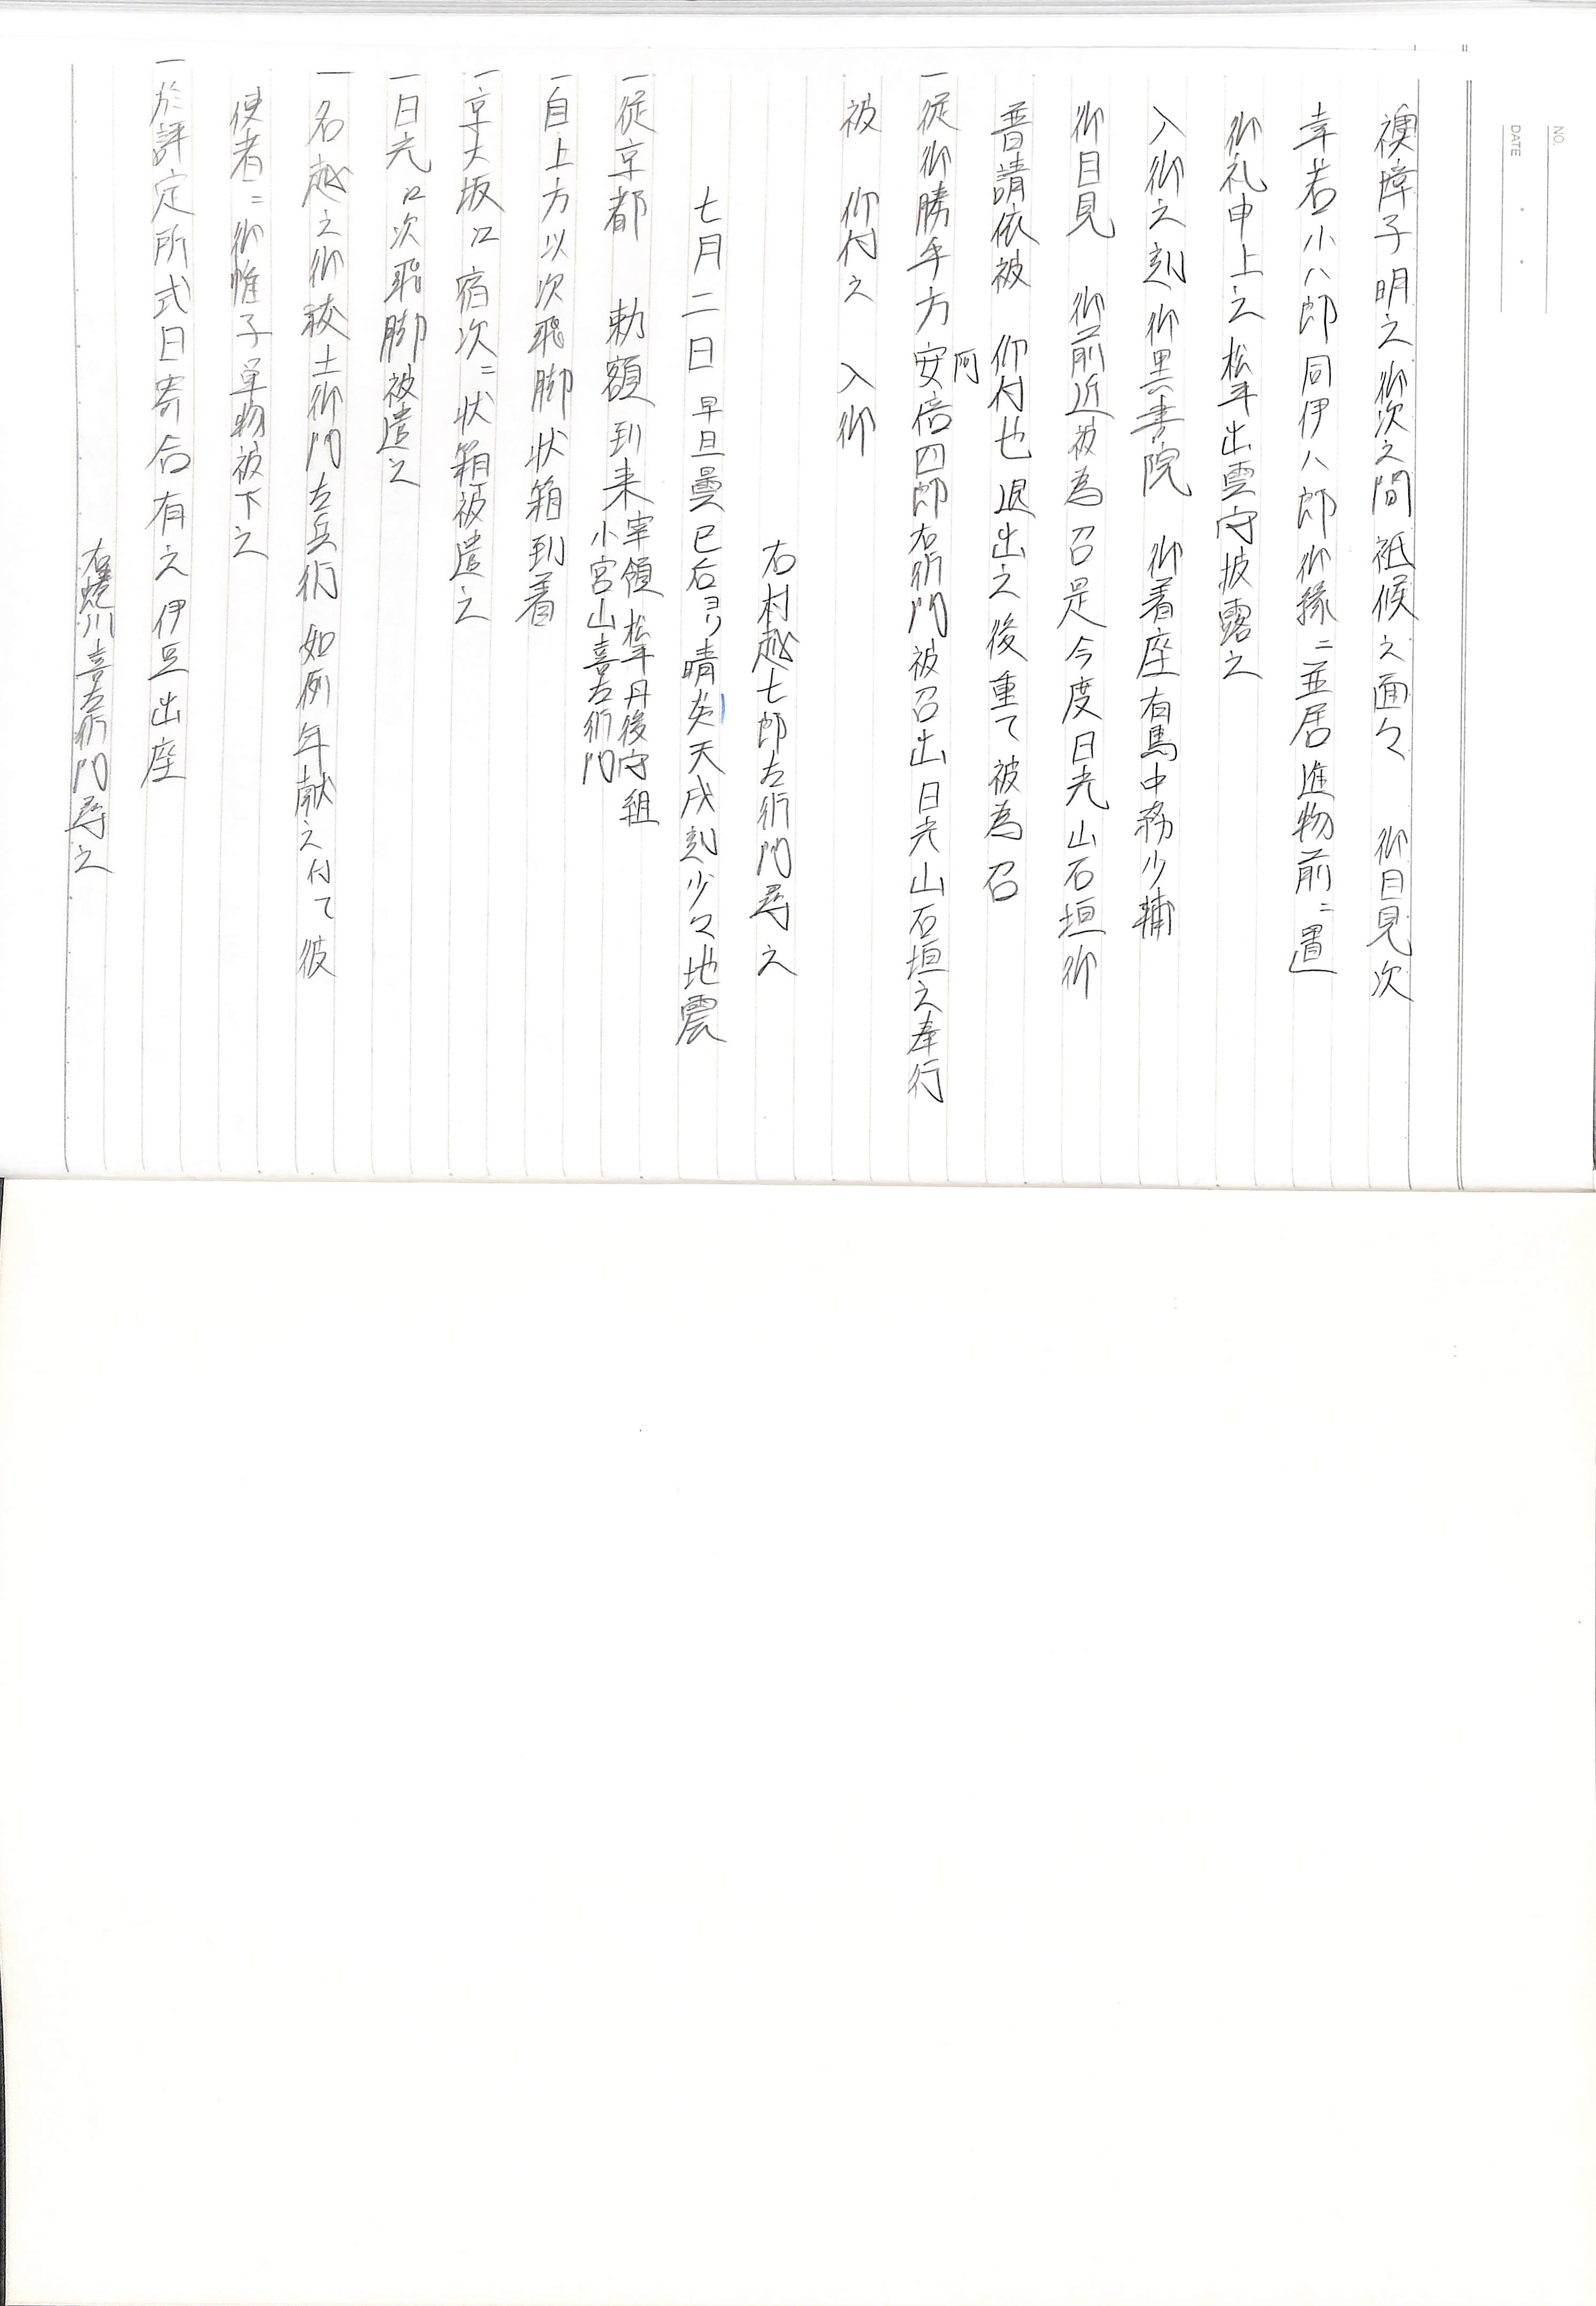 NO.
DATE
襖障子明之御次之間祗候之面々　御目見次
幸若小八郎同伊八郎御縁ニ並居進物前ニ置
御礼申上之松平出雲守披露之
入御之刻御黒書院　御着座有馬中務少輔
御目見　御前近被為召是今度日光山石垣御
普請依被　仰付也退出之後重て被為召
一従御勝手方安倍四郎右衛門被召出日光山石垣之奉行
阿
被　仰付之　入御
右村越七郎左衛門尋之
七月二日早旦曇巳后ヨリ晴炎天戌刻少々地震
一従京都　勅額到来宰領松平丹後守組
小宮山喜左衛門
一自上方以次飛脚状箱到着
一京大坂江宿次ニ状箱被遣之
一日光江次飛脚被遣之
一名越之御祓土御門左兵衛如例年献之付て彼
使者ニ御帷子単物被下之
一於評定所式日寄合有之伊豆出座
右蜷川喜左衛門尋之